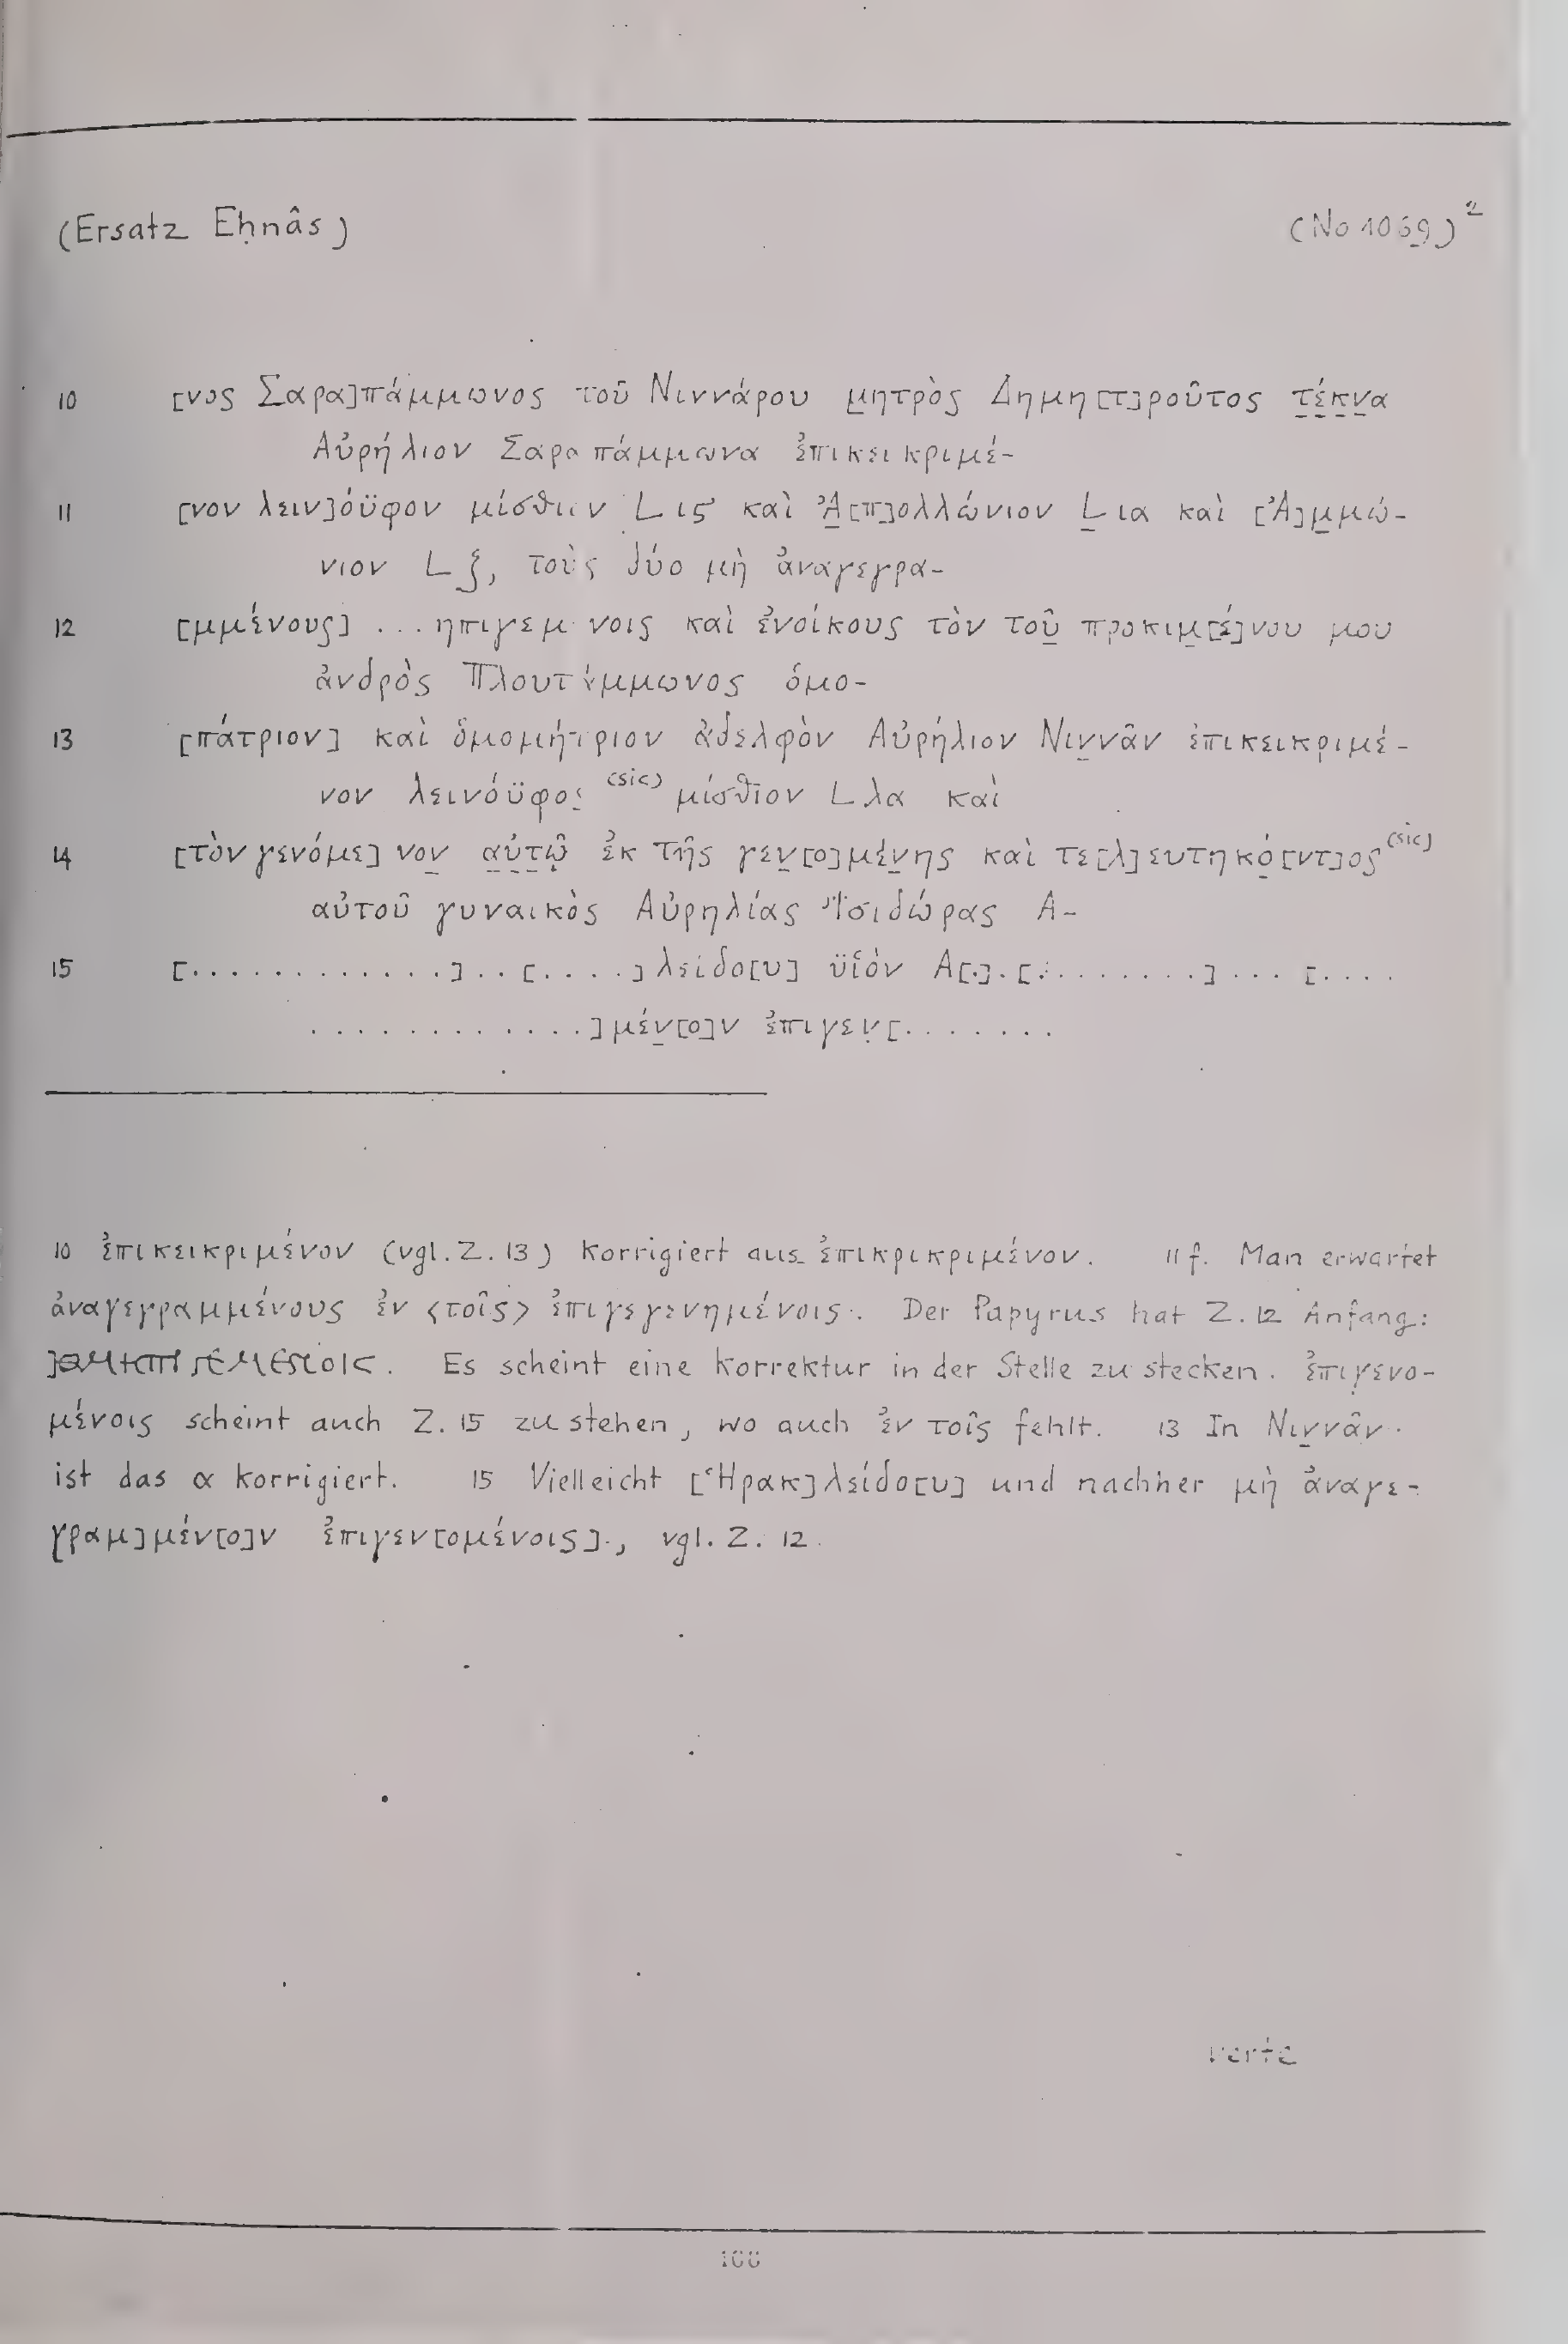 (Ersatz Eḥnâs) (No 1069)²
10 [νος Σαρα]πάμμωνος τοῦ Νιννάρου μητρὸς Δημη[τ]ροῦτος τέκνα
Αὐρήλιον Σαραπάμμωνα ἐπικεικριμέ-
11 [νον λειν]όϋφον μίσθιον L ις καὶ Ἀ[π]ολλώνιον L ια καὶ [Ἀ]μμώ-
νιον L ζ, τοὺς δύο μὴ ἀναγεγρα-
12 [μμένους] ...ηπιγεμ νοις καὶ ἐνοίκους τὸν τοῦ προκιμ[έ]νου μου
ἀνδρὸς Πλουτάμμωνος ὁμο-
13 [πάτριον] καὶ ὁμομήτριον ἀδελφὸν Αὐρήλιον Νιννᾶν ἐπικεικριμέ-
νον λεινόϋφος (sic) μίσθιον L λα καὶ
14 [τὸν γενόμε]νον αὐτῷ ἐκ τῆς γεν[ο]μένης καὶ τε[λ]ευτηκό[ντ]ος (sic)
αὐτοῦ γυναικὸς Αὐρηλίας Ἰσιδώρας Α-
15 [.............]..[.....]λείδο[υ] ϋἱὸν Α[.].[.........]...[....
.............]μέν[ο]ν ἐπιγεν[.......
10 ἐπικεικριμένον (vgl. Z. 13) korrigiert aus ἐπικρικριμένον. 11 f. Man erwartet
ἀναγεγραμμένους ἐν <τοῖς> ἐπιγεγενημένοις. Der Papyrus hat Z. 12 Anfang:
Es scheint eine Korrektur in der Stelle zu stecken. ἐπιγενο-
μένοις scheint auch Z. 15 zu stehen, wo auch ἐν τοῖς fehlt. 13 In Νιννᾶν
ist das α korrigiert. 15 Vielleicht [Ἡρακ]λείδο[υ] und nachher μὴ ἀναγε-
γραμ]μέν[ο]ν ἐπιγεν[ομένοις]., vgl. Z. 12.
verte